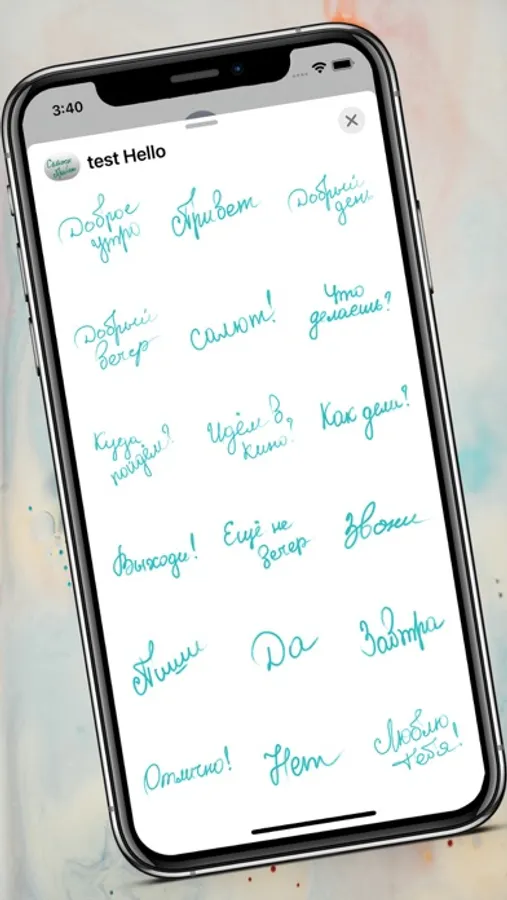 3:40
test Hello
Доброе
утро
Привет
Добрый
день
Добрый
вечер
Салют!
Что
делаешь?
Куда
пойдём?
Идём в
кино?
Как дела?
Выходи!
Ещё не
вечер
Звони
Пиши
Да
Завтра
Отлично!
Нет
Люблю
тебя!